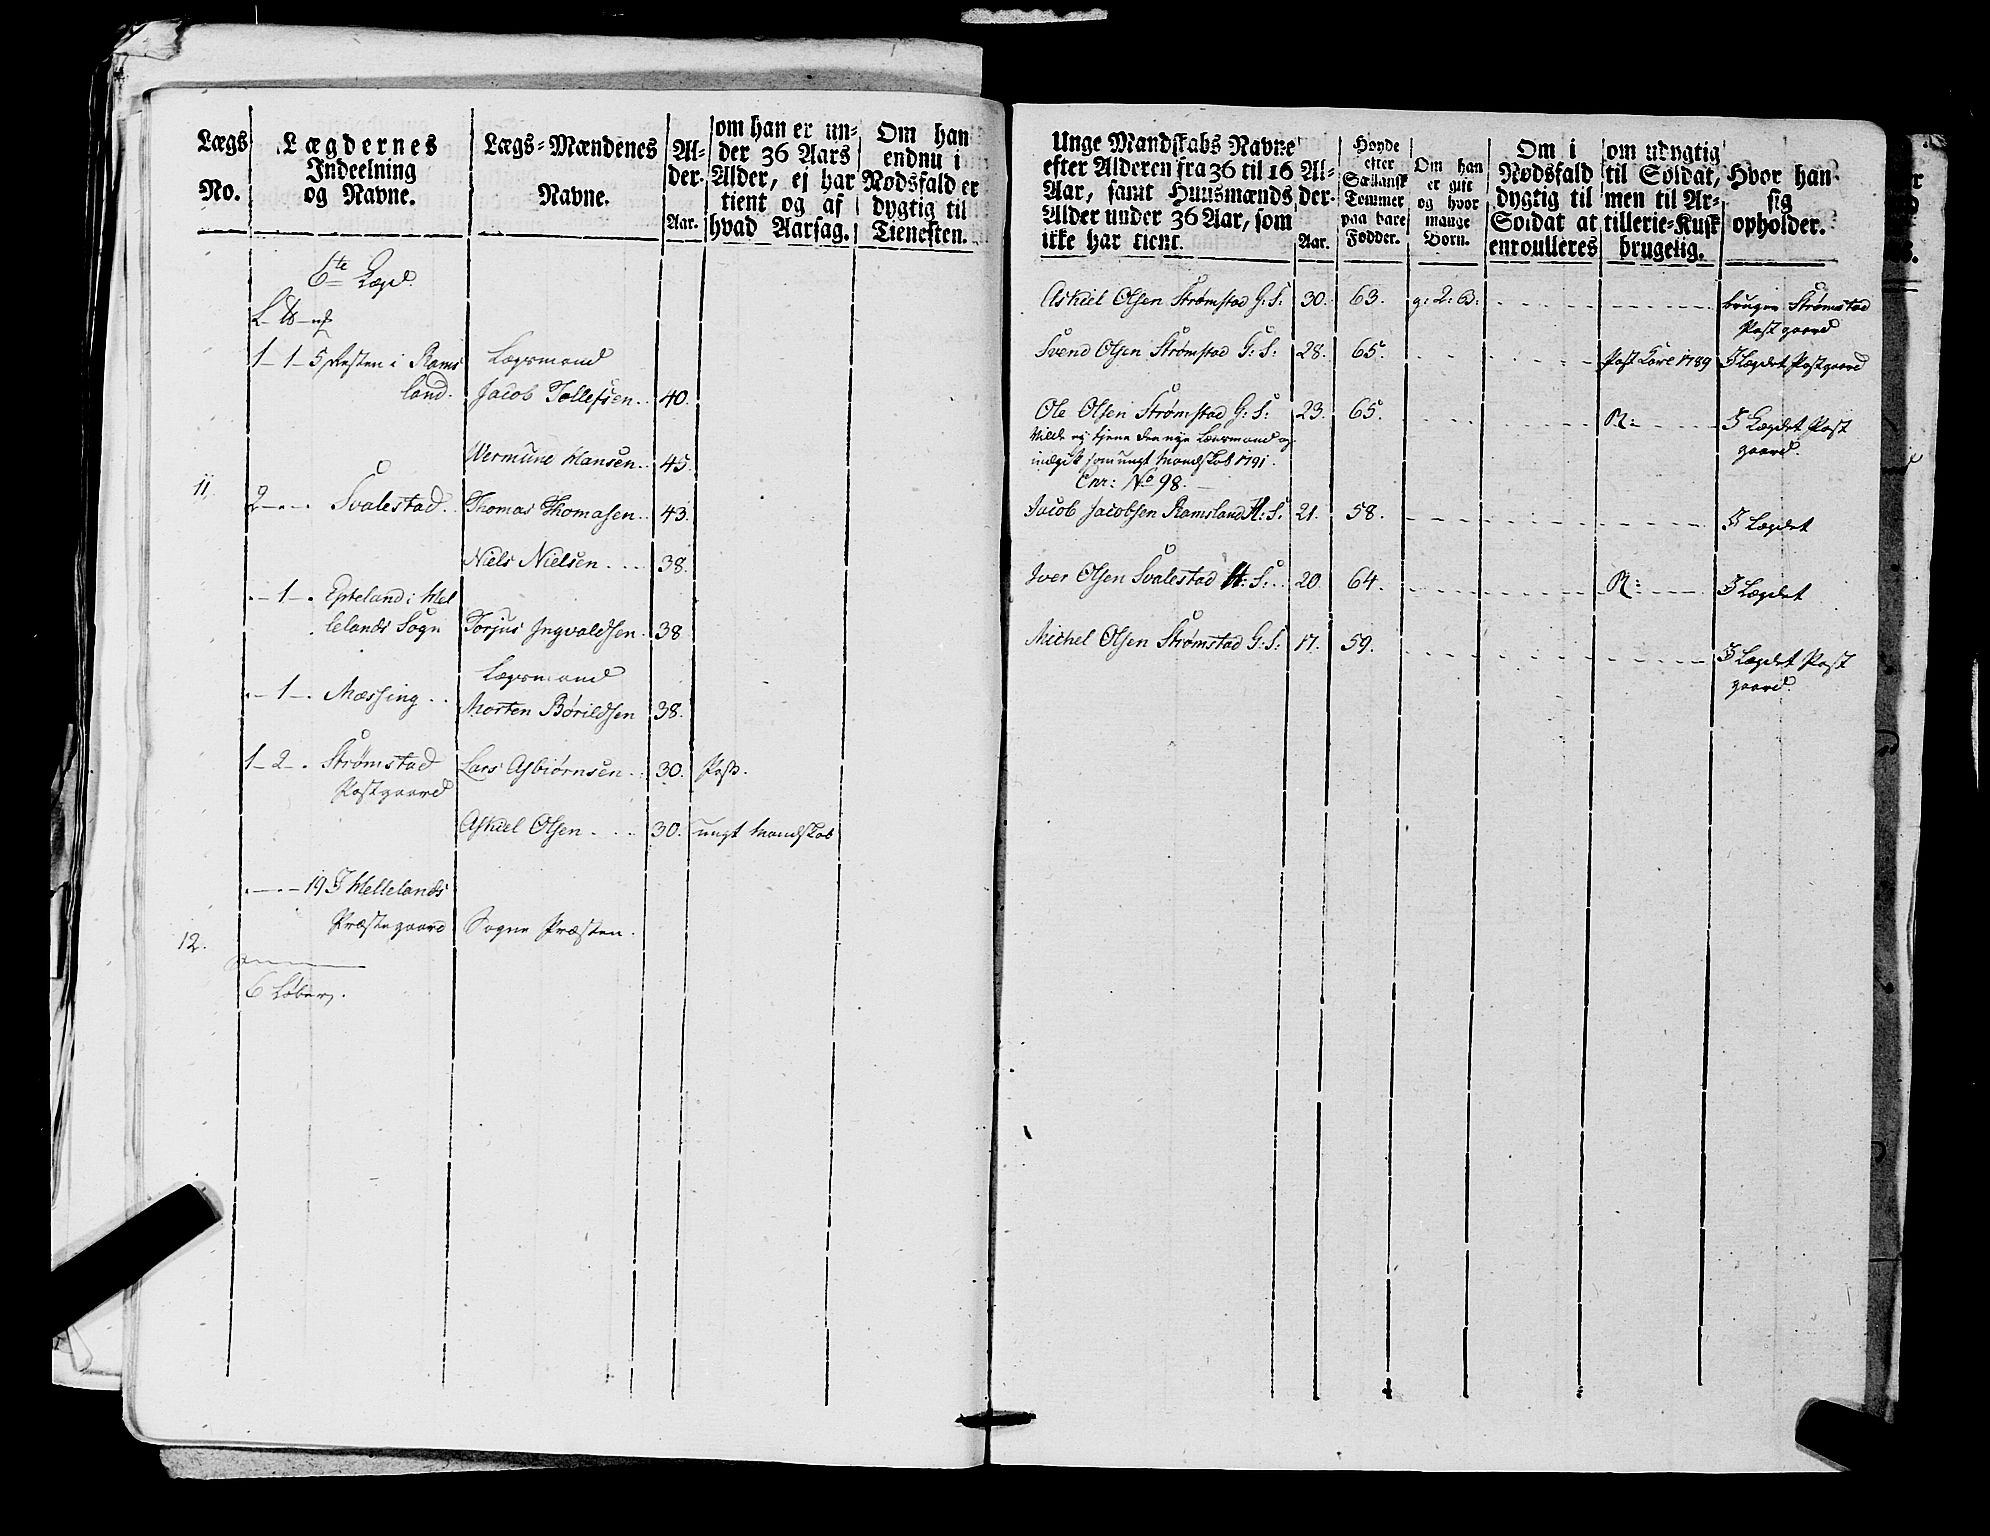 Lægs No.
Lægdernes Indeelning og Navne.
Lægs=Mændenes Navne.
Al-der. Aar.
om han er un=
der 36 Aars
Alder, ej har
tient og af
hvad Aarsag.
Om han
endnu i
Nødsfald er
dygtig til
Tienesten.
6te Lægd.
L ℔ 
1 - 1 - 5 Resten i Rams
land.
Lægsmand
Jacob Tollefsen . . 40.
Wermune Hansen . . 45.
11.
2 - . - . Svalestad . . Thomas Thomasen . . 43.
Niels Nielsen . . . . 38.
. - 1 - . Epteland i Hel
lelands Sogn Torjus Ingvaldsen . 38
Lægsmand
. - 1 - . Mæssing . . Morten Børildsen 38.
1 - 2 - . Strømstad Lars Asbiørnsen . . 30. Pass.
Postgaard
Askiel Olsen . . . . 30. ungt Mandskab
. - . - 19 I Hellelands
Præstegaard Sogne Præsten.
12.
6 Løber.
Unge Mandskabs Navne
efter Alderen fra 36 til 16
Aar, samt Huusmænds
Alder under 36 Aar, som
ikke har tient.
Al-
der.
Aar.
Høyde
efter
Siællansk
Tommer
paa bare
Fødder.
Om han
er gift
og hvor
mange
Børn.
Om i
Nødsfald
dygtig til
Soldat at
enroulleres
om udygtig
til Soldat,
men til Ar=
tillerie=Kusk
brugelig.
Hvor han
sig
opholder.
Askiel Olsen Strømstad G: S: 30. 63. g: 2: B: bruger Strømstad
Postgaard
Svend Olsen Strømstad G: S: 28. 65. Post Kare 1789 I Lægdet Postgaard
Ole Olsen Strømstad G: S: 23. 65. R: I Lægdet Post
gaard.
Vilde ej tjene den nye Lænsmand og
indgik som ungt Mandskab 1791.
Enr: No 98.
Jacob Jacobsen Ramsland H: S: 21. 58. I Lægdet
Iver Olsen Svalestad H: S: . 20. 64. R: I Lægdet
Michel Olsen Strømstad G: S: 17. 59. I Lægdet Post
gaard.